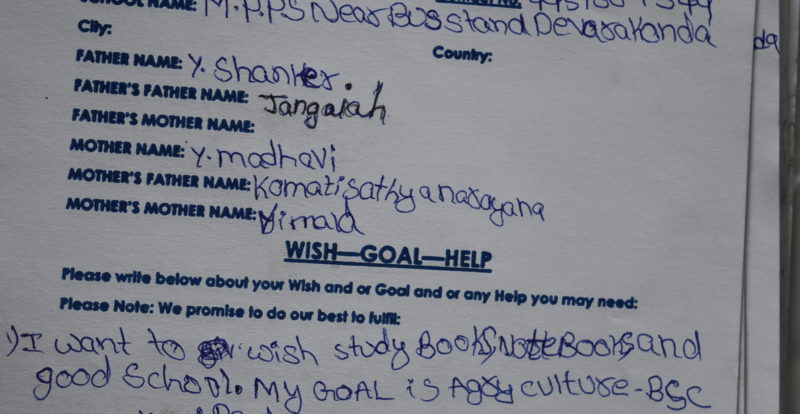 SCHOOL NAME: M.P.P.S Near Bus stand Devarakonda
City: Country:
FATHER NAME: Y. Shanker.
FATHER'S FATHER NAME: Jangaiah
FATHER'S MOTHER NAME:
MOTHER NAME: Y. madhavi
MOTHER'S FATHER NAME: Komatisathyanarayana
MOTHER'S MOTHER NAME: Vimala
WISH—GOAL—HELP
Please write below about your Wish and or Goal and or any Help you may need:
Please Note: We promise to do our best to fulfil:
1) I want to wish study Books, NoteBooks and
good School. MY GOAL is Agry culture-BSC